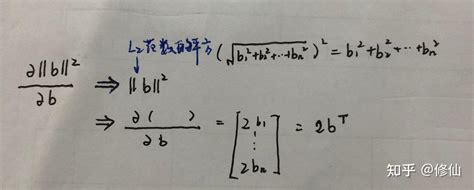 L₂范数的平方 (√b₁²+b₂²+⋯+bₙ²)² = b₁²+b₂²+⋯+bₙ²
∂‖b‖²/∂b ⇒ ‖b‖²
⇒ ∂( )/∂b = [2b₁ ⋮ 2bₙ] = 2bᵀ
知乎 @修仙